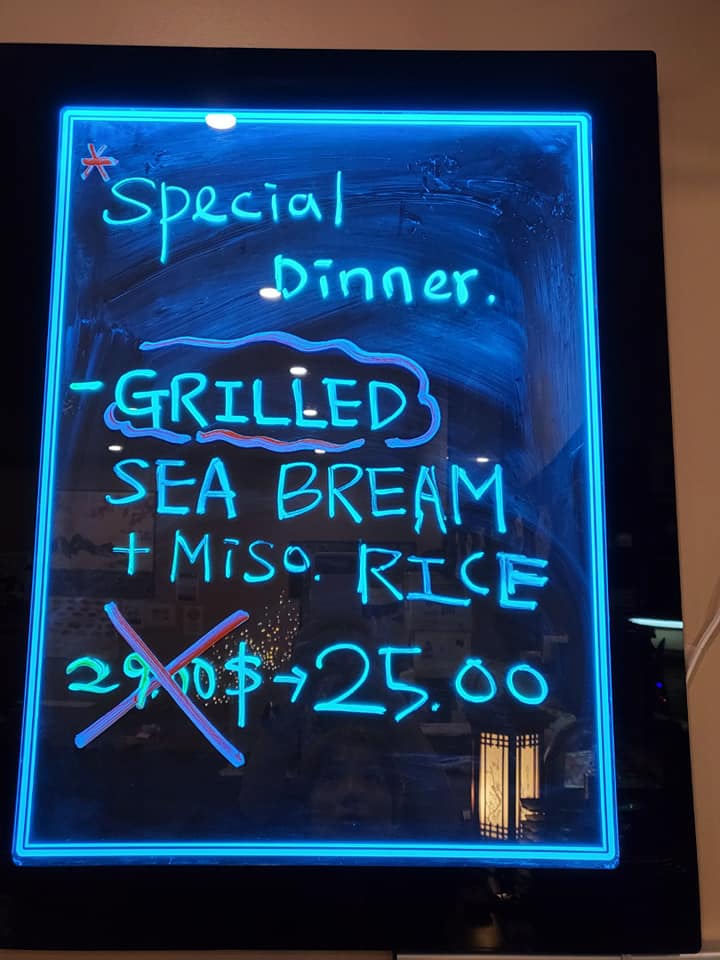 * Special
Dinner.
- GRILLED
SEA BREAM
+ MISO. RICE
29.00 $ → 25.00